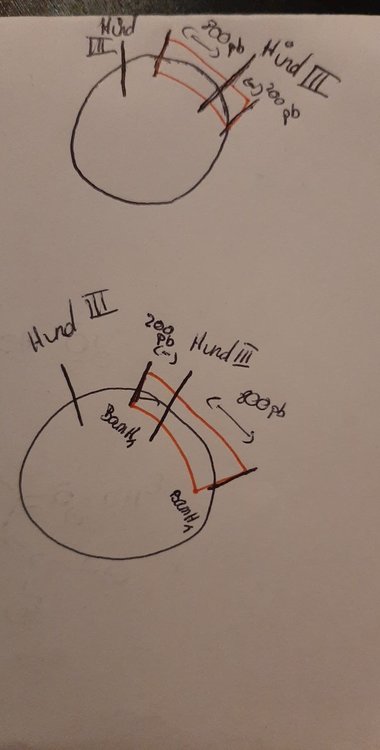 Hind
III
800 pb
Hind III
200 pb
Hind III
200
pb
Hind III
800 pb
BamH1
BamH1